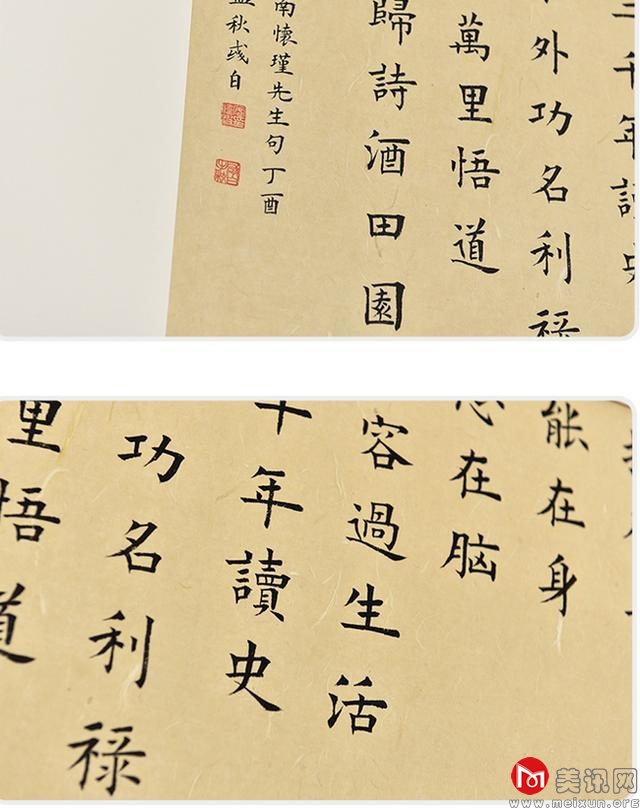 千年讀史
外功名利禄
萬里悟道
歸詩酒田園
南懷瑾先生句丁酉
秋彧自
能在身
在脑
容過生活
千年讀史
功名利禄
里悟道
美讯网
www.meixun.org